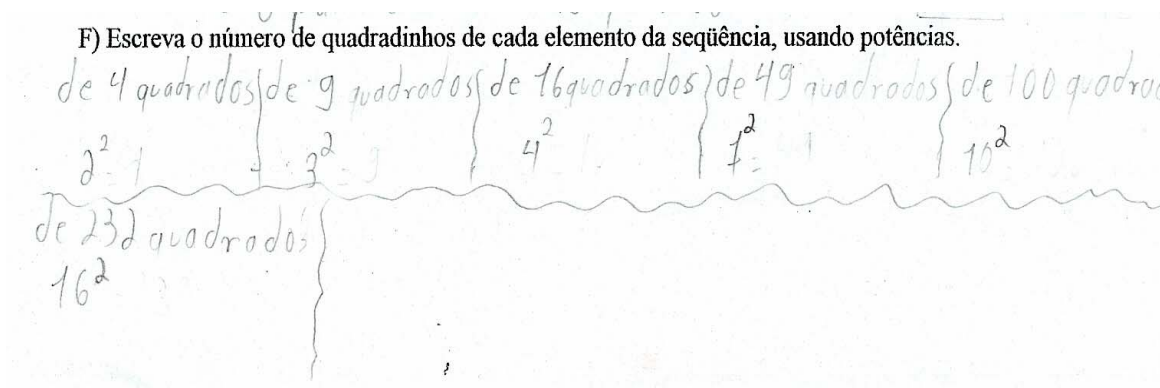 F) Escreva o número de quadradinhos de cada elemento da seqüência, usando potências.
de 4 quadrados de 9 quadrados de 16 quadrados de 49 quadrados de 100 quadra
2² 3² 4² 7² 10²
de 232 quadrados
16²